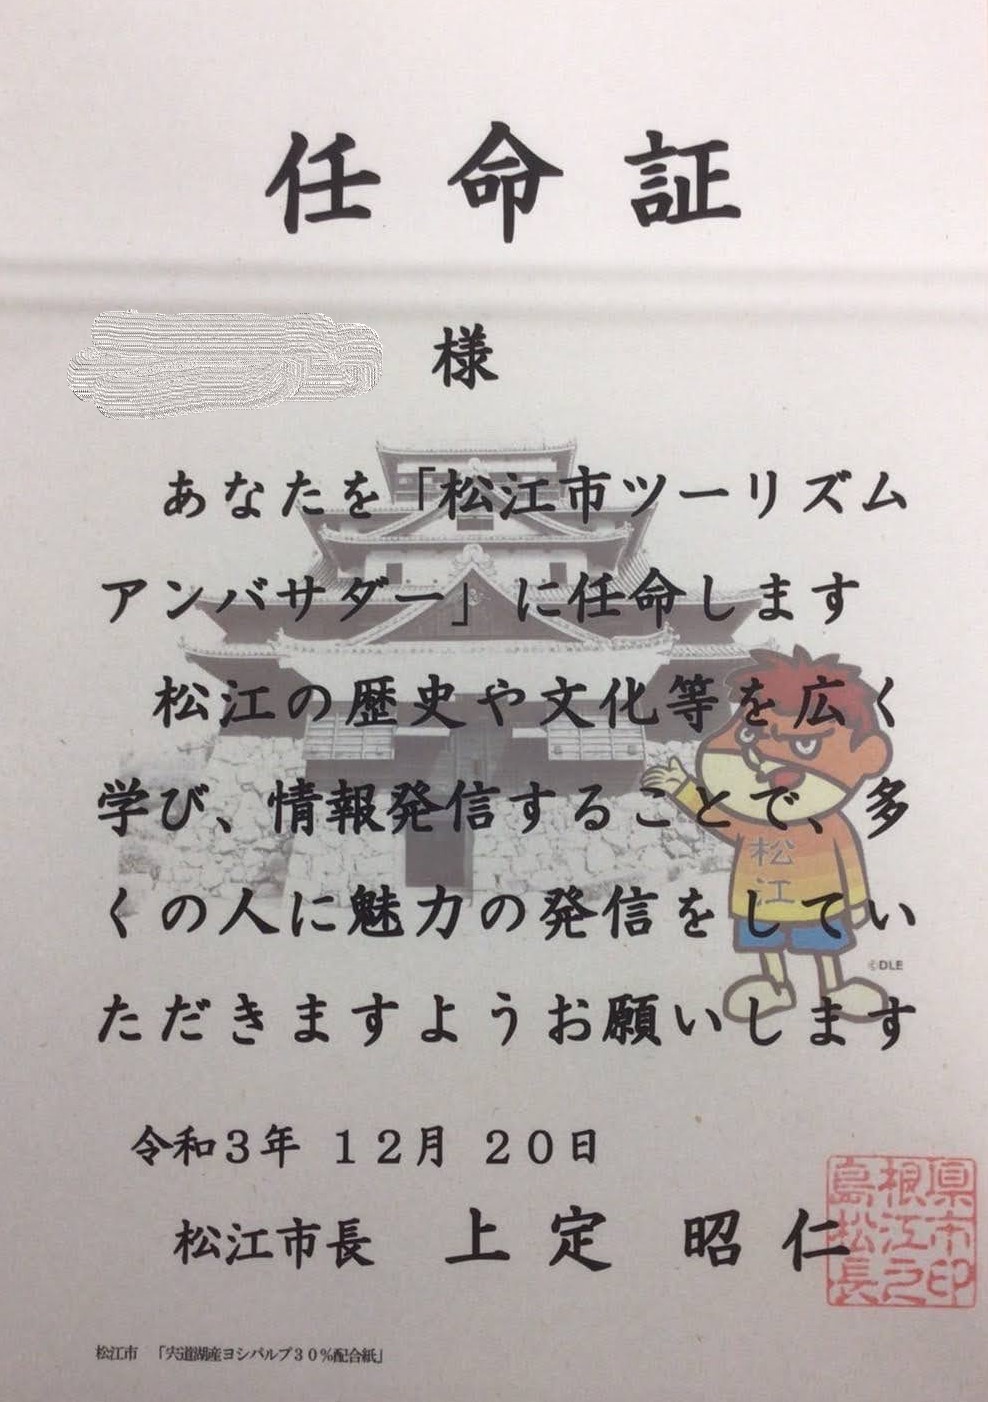 任命証
様
あなたを「松江市ツーリズム
アンバサダー」に任命します
松江の歴史や文化等を広く
学び、情報発信することで、多
くの人に魅力の発信をしてい
ただきますようお願いします
松
江
©DLE
令和3年 12月 20日
松江市長 上定 昭仁
島根県
松江市
長之印
松江市 「宍道湖産ヨシパルプ30%配合紙」